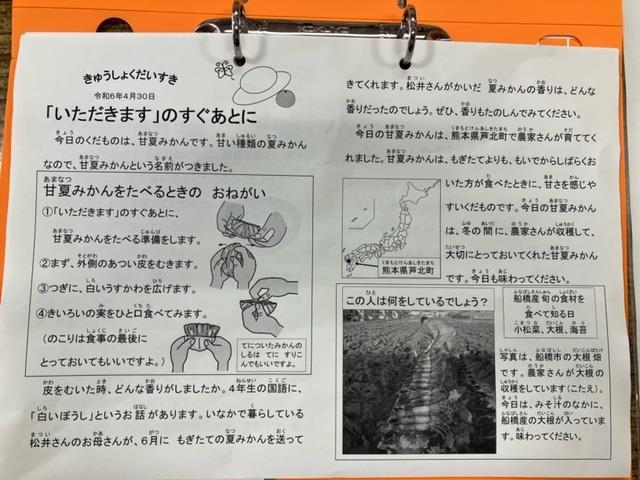 きゅうしょくだいすき
令和6年4月30日
「いただきます」のすぐあとに
今日のくだものは、甘夏みかんです。甘い種類の夏みかん
なので、甘夏みかんという名前がつきました。
甘夏みかんをたべるときの おねがい
①「いただきます」のすぐあとに、
甘夏みかんをたべる準備をします。
②まず、外側のあつい皮をむきます。
③つぎに、白いうすかわを広げます。
④きいろいの実をひと口食べてみます。
(のこりは食事の最後に
とっておいてもいいですよ。)
てについたみかんの
しるは てに すりこ
んでもいいですよ。
皮をむいた時、どんな香りがしましたか。4年生の国語に、
「白いぼうし」というお話があります。いなかで暮らしている
松井さんのお母さんが、6月に もぎたての夏みかんを送って
きてくれます。松井さんがかいだ 夏みかんの香りは、どんな
香りだったのでしょう。ぜひ、香りもたのしんでみてください。
今日の甘夏みかんは、熊本県芦北町で農家さんが育ててく
れました。甘夏みかんは、もぎたてよりも、もいでからしばらくお
いた方が食べたときに、甘さを感じや
すいくだものです。今日の甘夏みかん
は、冬の間に、農家さんが収穫して、
大切にとっておいてくれた甘夏みかん
です。今日も味わってください。
熊本県芦北町
この人は何をしているでしょう?
船橋産旬の食材を
食べて知る日
小松菜、大根、海苔
写真は、船橋市の大根畑
です。農家さんが大根の
収穫をしています(こたえ)。
今日は、みそ汁のなかに、
船橋産の大根が入っていま
す。味わってください。